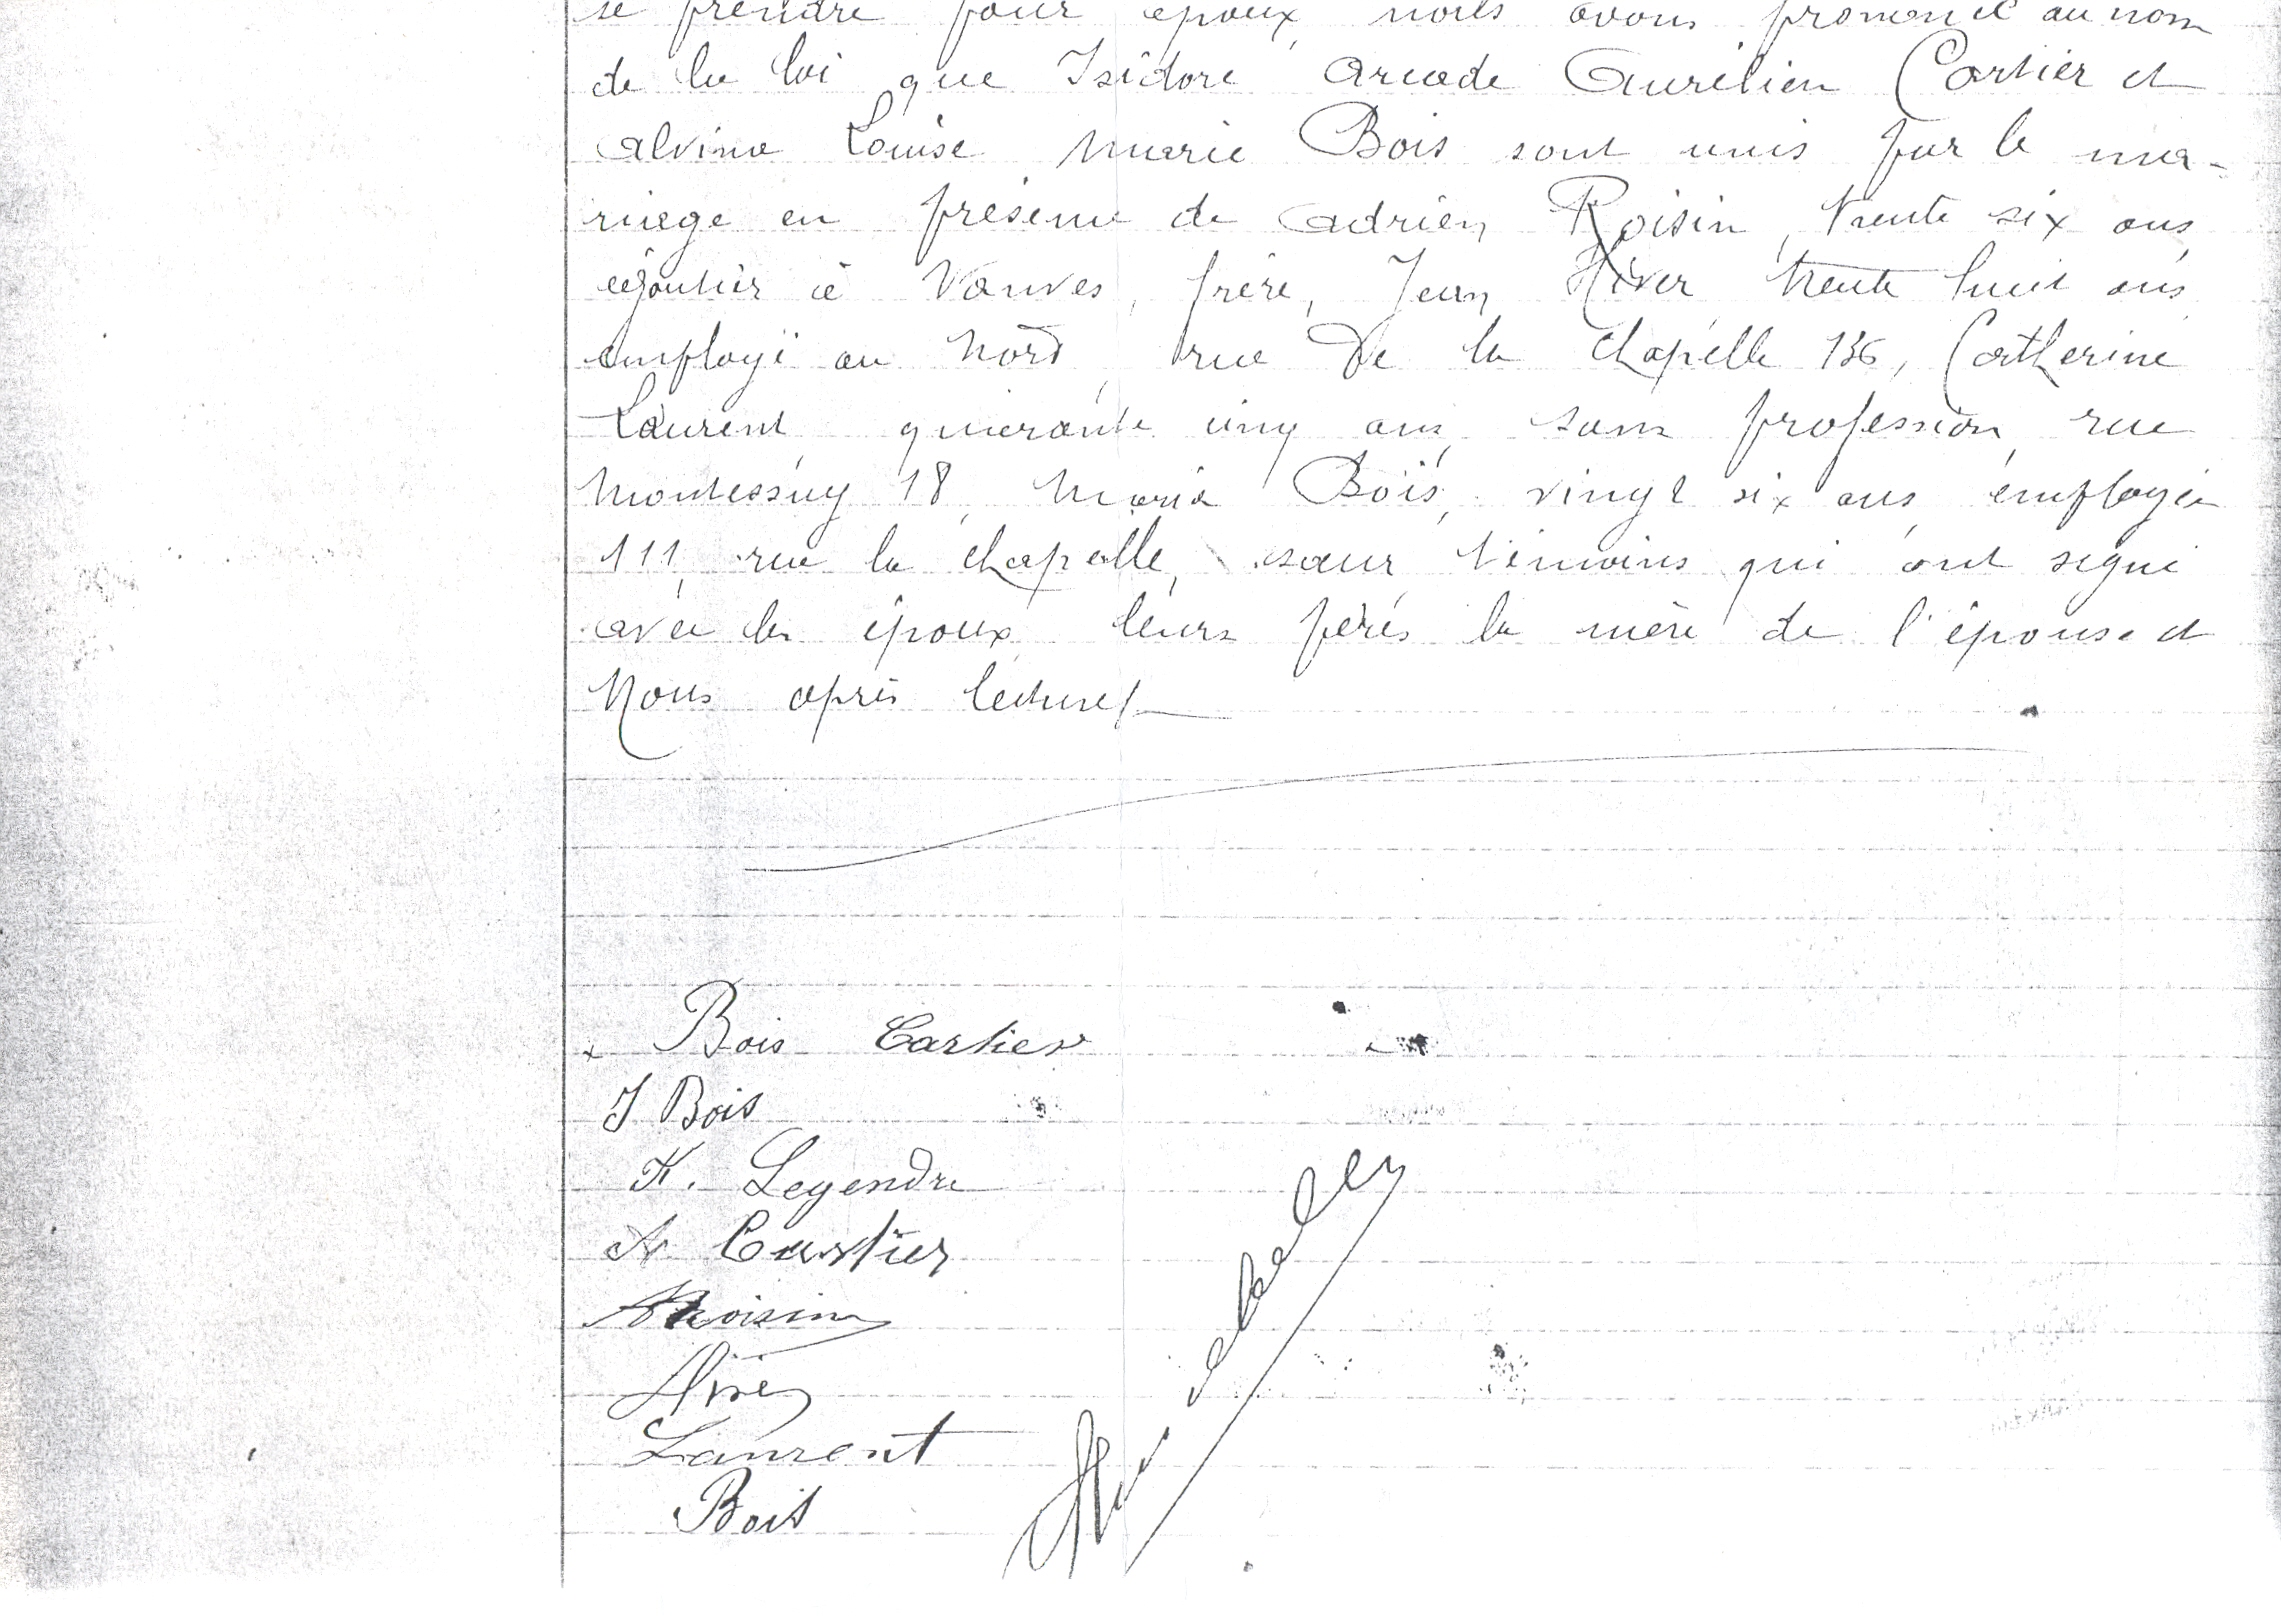 se prendre pour époux, nous avons prononcé au nom
de la loi que Isidore Arcade Aurélien Cartier et
Alvina Louise Marie Bois sont unis par le ma-
riage en présence de Adrien Roisin, trente six ans
égoutier à Vanves, frère, Jean Hiver trente huit ans
employé au Nord, rue De la Chapelle 136, Catherine
Laurent quarante cinq ans, sans profession, rue
Montessuy 18, Maria Bois, vingt six ans employée
111, rue la Chapelle, soeur, témoins qui ont signé
avec les époux, leurs pères la mère de l'épouse et
Nous après lecture/.
Bois Cartier
J Bois
K. Legendre
A Cartier
ARoisin
Hiver
Laurent
Bois